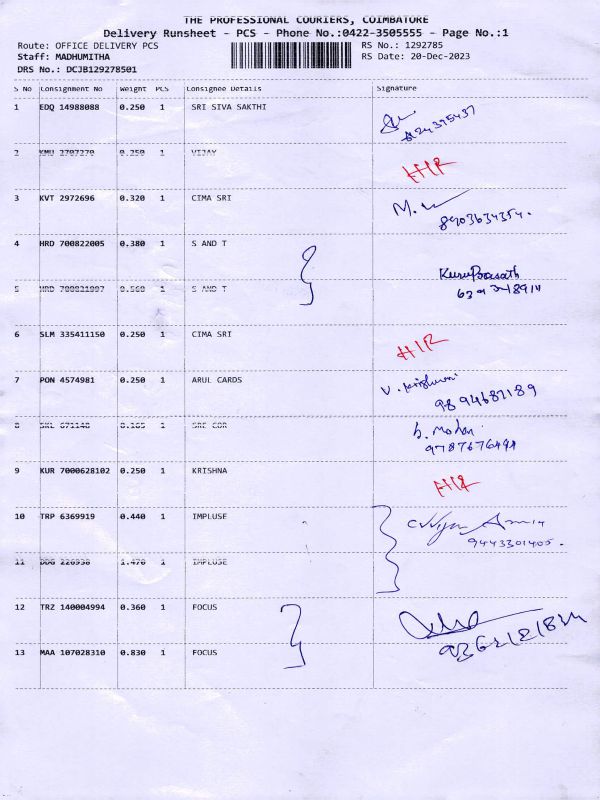 THE PROFESSIONAL COURIERS, COIMBATORE
Delivery Runsheet - PCS - Phone No.:0422-3505555 - Page No.:1
Route: OFFICE DELIVERY PCS RS No.: 1292785
Staff: MADHUMITHA RS Date: 20-Dec-2023
DRS No.: DCJB129278501
S No Consignment No Weight PCS Consignee Details Signature
1 EDQ 14988088 0.250 1 SRI SIVA SAKTHI
2 KMU 2707270 0.250 1 VIJAY
3 KVT 2972696 0.320 1 CIMA SRI
8903634354.
4 HRD 700822005 0.380 1 S AND T
GuruPrasath
5 HRD 1 S AND T
6 SLM 335411150 0.250 1 CIMA SRI
7 PON 4574981 0.250 1 ARUL CARDS
9894687189
8 1
b. Mohan
9787676494
9 KUR 7000628102 0.250 1 KRISHNA
10 TRP 6369919 0.440 1 IMPLUSE
9443301405.
11 1.470 1 IMPLUSE
12 TRZ 140004994 0.360 1 FOCUS
13 MAA 107028310 0.830 1 FOCUS